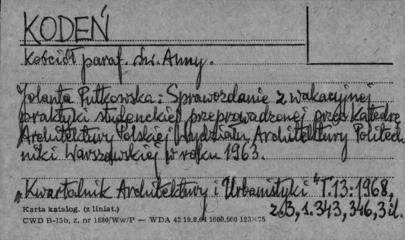 KODEŃ
Kościół paraf. św. Anny.
Jolanta Putkowska: Sprawozdanie z wakacyjnej
praktyki studenckiej przeprowadzonej przez Katedrę
Architektury Polskiej Wydziału Architektury Politech
niki Warszawskiej w roku 1963.
„Kwartalnik Architektury i Urbanistyki" T.13:1968,
z.3, s.343, 346, 3 il.
Karta katalog. (z liniat.)
CWD B-15b, z. nr 1880/Ww/P — WDA 42 19.8.64 1600.000 123×75